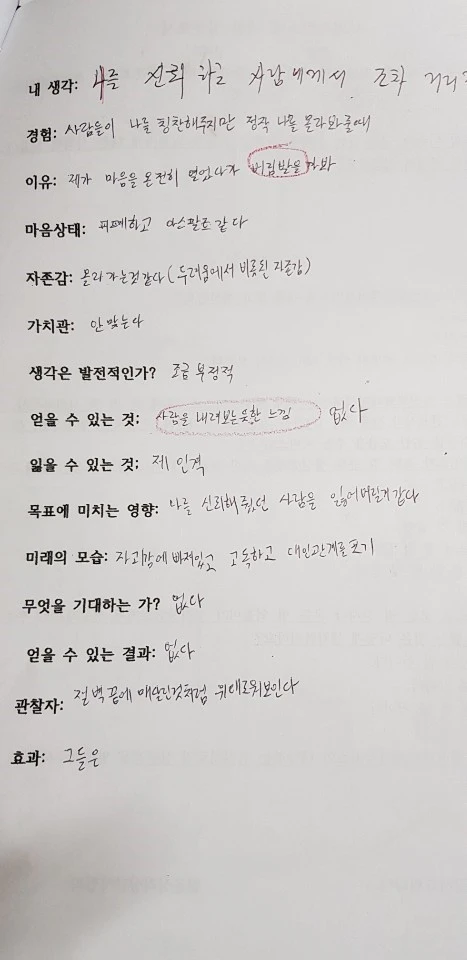 내 생각: 나를 신뢰 하는 사람에게서 조차 거리
경험: 사람들이 나를 칭찬해주지만 정작 나를 몰라봐줄때
이유: 제가 마음을 온전히 열었다가 버림받을까봐
마음상태: 피폐하고 아스팔트 같다
자존감: 올라가는것같다 (두려움에서 비롯된 자존감)
가치관: 안 맞는다
생각은 발전적인가? 조금 부정적
얻을 수 있는 것: 사람을 내려보는듯한 느낌 없다
잃을 수 있는 것: 제 인격
목표에 미치는 영향: 나를 신뢰해줬던 사람을 잃어버릴거같다
미래의 모습: 자괴감에 빠져있고 고독하고 대인관계를 포기
무엇을 기대하는 가? 없다
얻을 수 있는 결과: 없다
관찰자: 절벽 끝에 매달린것처럼 위태로워보인다
효과: 그들은